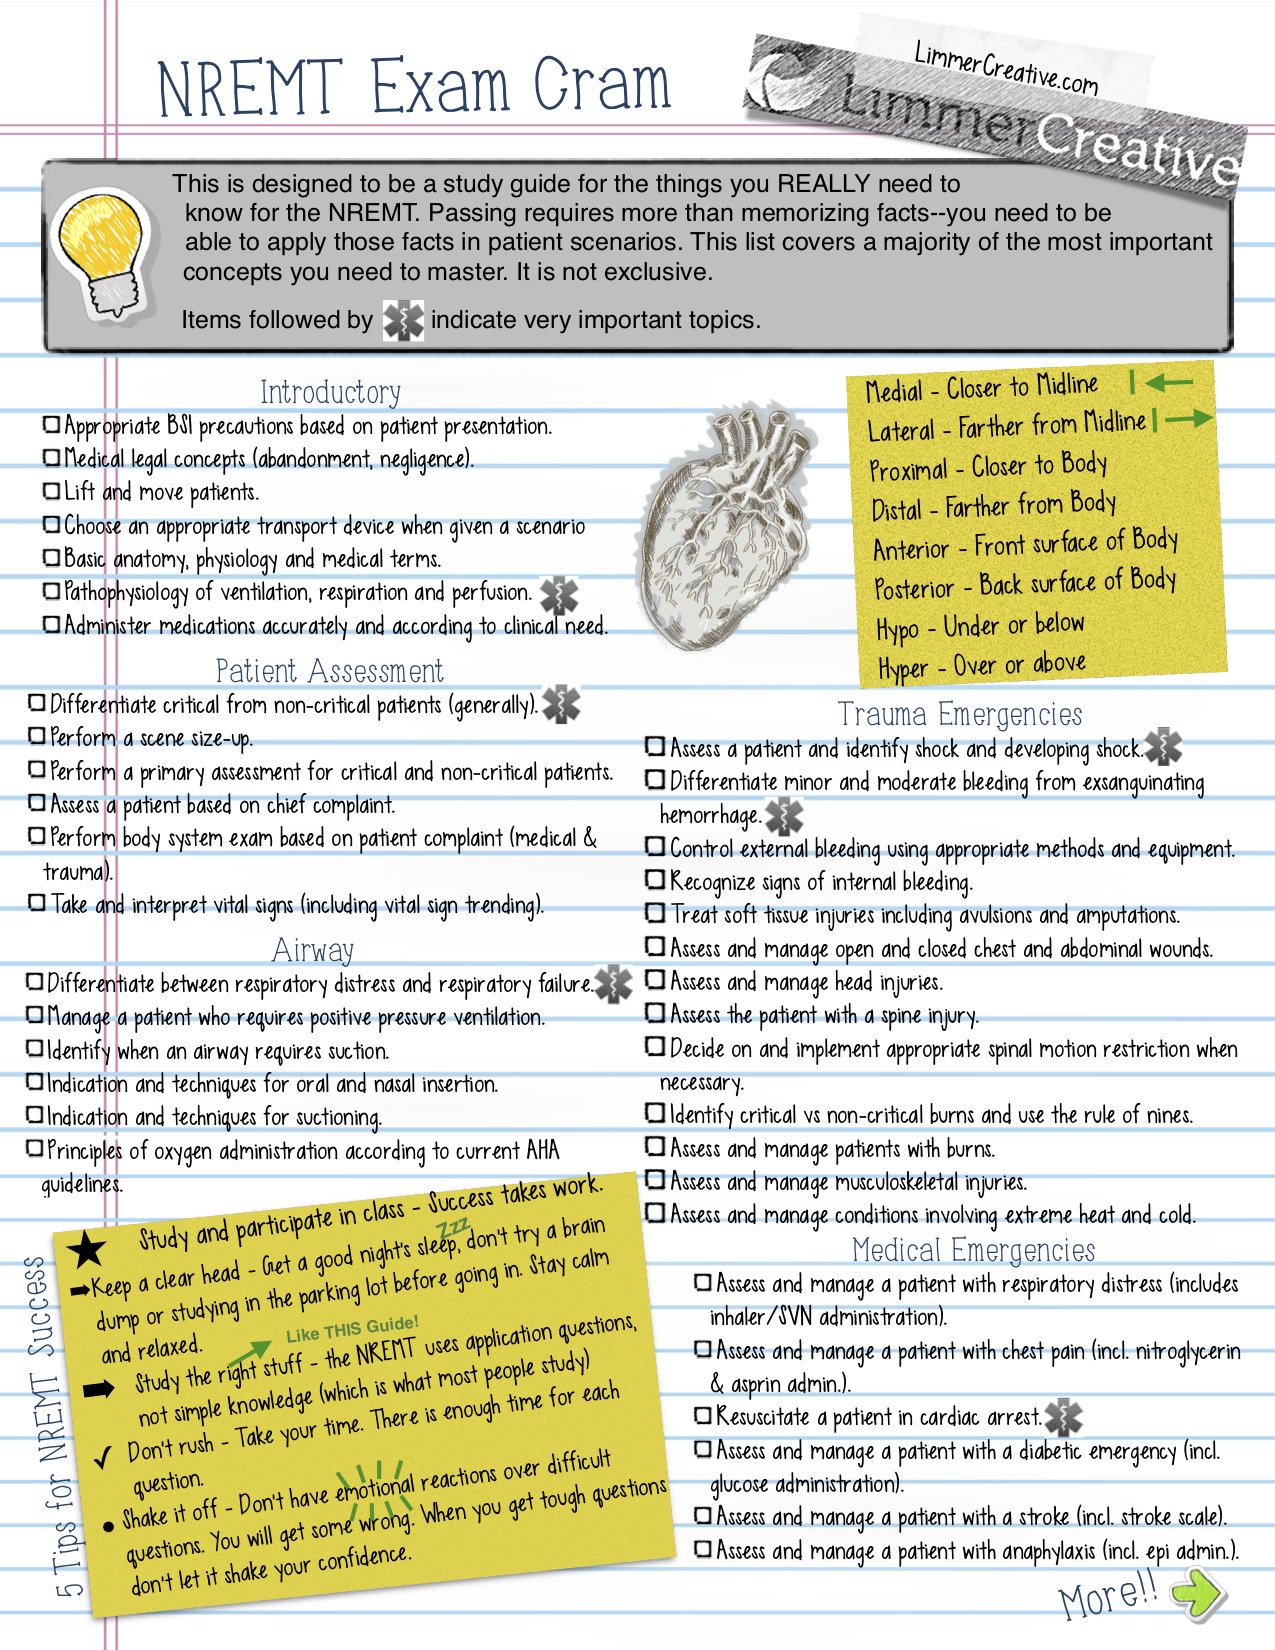 NREMT Exam Cram
LimmerCreative.com
LimmerCreative
This is designed to be a study guide for the things you REALLY need to
know for the NREMT. Passing requires more than memorizing facts--you need to be
able to apply those facts in patient scenarios. This list covers a majority of the most important
concepts you need to master. It is not exclusive.
Items followed by indicate very important topics.
Introductory
Appropriate BSI precautions based on patient presentation.
Medical legal concepts (abandonment, negligence).
Lift and move patients.
Choose an appropriate transport device when given a scenario
Basic anatomy, physiology and medical terms.
Pathophysiology of ventilation, respiration and perfusion.
Administer medications accurately and according to clinical need.
Patient Assessment
Differentiate critical from non-critical patients (generally).
Perform a scene size-up.
Perform a primary assessment for critical and non-critical patients.
Assess a patient based on chief complaint.
Perform body system exam based on patient complaint (medical &
trauma).
Take and interpret vital signs (including vital sign trending).
Airway
Differentiate between respiratory distress and respiratory failure.
Manage a patient who requires positive pressure ventilation.
Identify when an airway requires suction.
Indication and techniques for oral and nasal insertion.
Indication and techniques for suctioning.
Principles of oxygen administration according to current AHA
guidelines.
5 Tips for NREMT Success
Study and participate in class - Success takes work.
Zzz
Keep a clear head - Get a good night's sleep, don't try a brain
dump or studying in the parking lot before going in. Stay calm
and relaxed.
Like THIS Guide!
Study the right stuff - the NREMT uses application questions,
not simple knowledge (which is what most people study)
Don't rush - Take your time. There is enough time for each
question.
Shake it off - Don't have emotional reactions over difficult
questions. You will get some wrong. When you get tough questions
don't let it shake your confidence.
Medial - Closer to Midline
Lateral - Farther from Midline
Proximal - Closer to Body
Distal - Farther from Body
Anterior - Front surface of Body
Posterior - Back surface of Body
Hypo - Under or below
Hyper - Over or above
Trauma Emergencies
Assess a patient and identify shock and developing shock.
Differentiate minor and moderate bleeding from exsanguinating
hemorrhage.
Control external bleeding using appropriate methods and equipment.
Recognize signs of internal bleeding.
Treat soft tissue injuries including avulsions and amputations.
Assess and manage open and closed chest and abdominal wounds.
Assess and manage head injuries.
Assess the patient with a spine injury.
Decide on and implement appropriate spinal motion restriction when
necessary.
Identify critical vs non-critical burns and use the rule of nines.
Assess and manage patients with burns.
Assess and manage musculoskeletal injuries.
Assess and manage conditions involving extreme heat and cold.
Medical Emergencies
Assess and manage a patient with respiratory distress (includes
inhaler/SVN administration).
Assess and manage a patient with chest pain (incl. nitroglycerin
& asprin admin.).
Resuscitate a patient in cardiac arrest.
Assess and manage a patient with a diabetic emergency (incl.
glucose administration).
Assess and manage a patient with a stroke (incl. stroke scale).
Assess and manage a patient with anaphylaxis (incl. epi admin.).
More!!